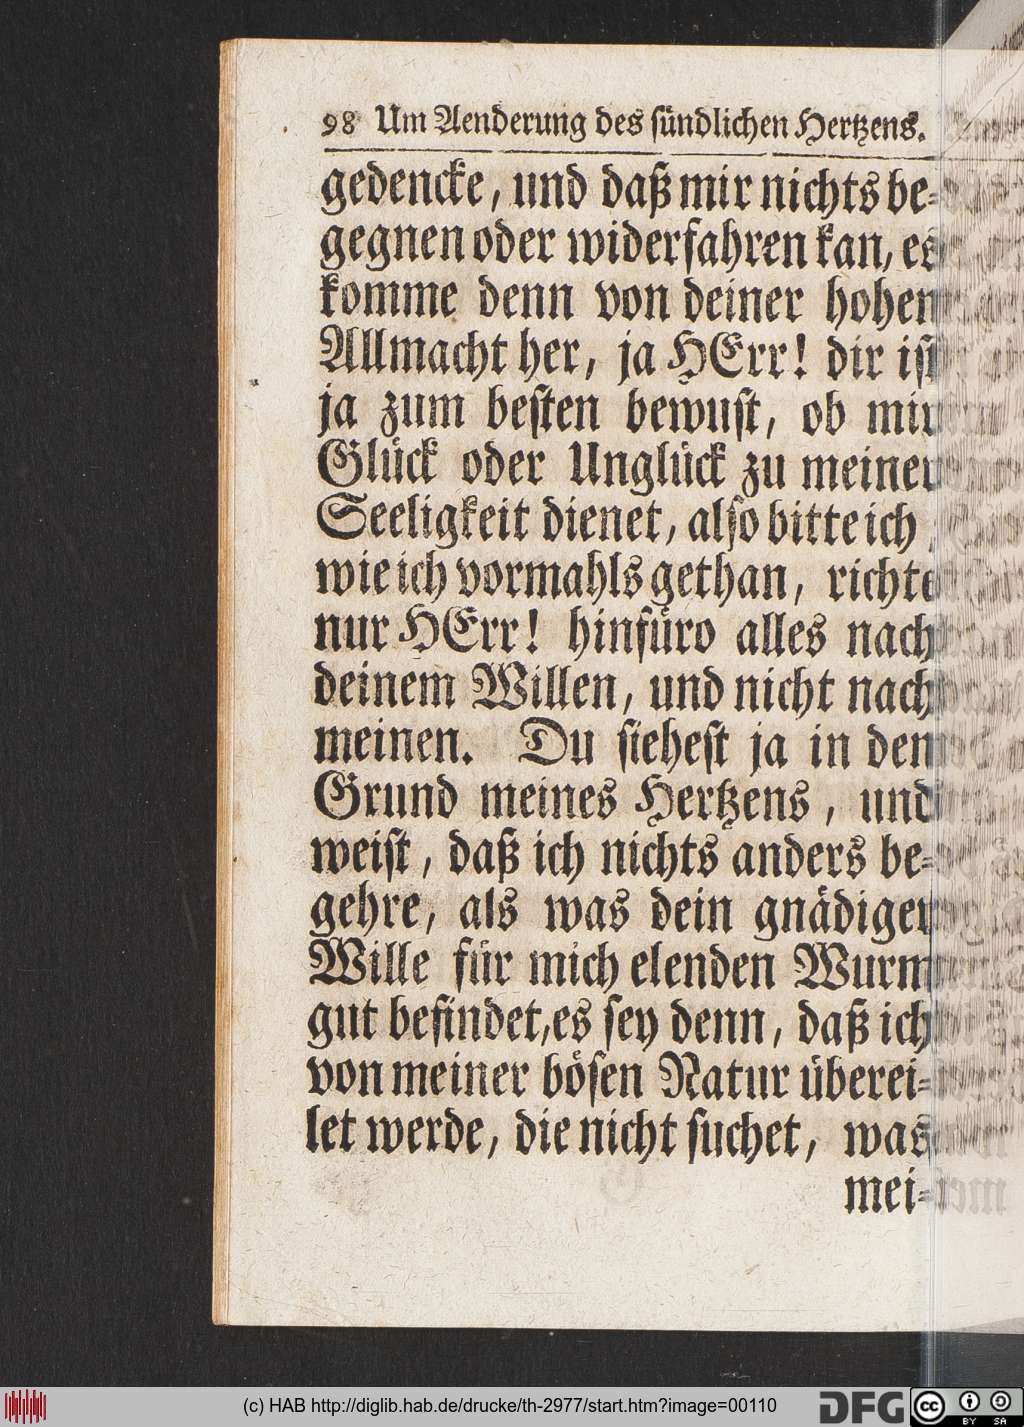 98 Um Aenderung des sündlichen Hertzens.
gedencke, und daß mir nichts be-
gegnen oder widerfahren kan, es
komme denn von deiner hohen
Allmacht her, ja HErr! dir ist
ja zum besten bewust, ob mir
Glück oder Unglück zu meiner
Seeligkeit dienet, also bitte ich
wie ich vormahls gethan, richte
nur HErr! hinfüro alles nach
deinem Willen, und nicht nach
meinen. Du siehest ja in den
Grund meines Hertzens, und
weist, daß ich nichts anders be-
gehre, als was dein gnädiger
Wille für mich elenden Wurm
gut befindet, es sey denn, daß ich
von meiner bösen Natur überei-
let werde, die nicht suchet, was
mei-
(c) HAB http://diglib.hab.de/drucke/th-2977/start.htm?image=00110
DFG
cc
BY SA